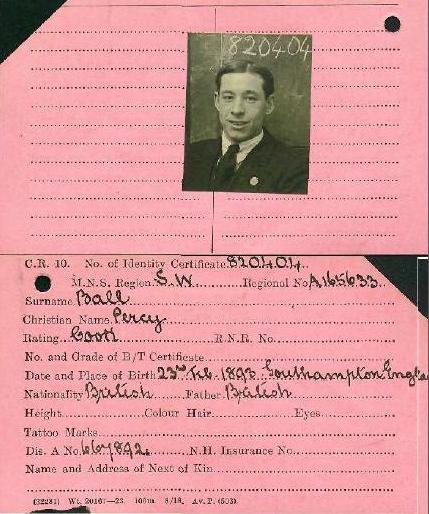 820404
C.R. 10. No. of Identity Certificate 820404
M.N.S. Region S.W. Regional No A165633
Surname Ball
Christian Name Percy
Rating Cook R.N.R. No.
No. and Grade of B/T Certificate
Date and Place of Birth 23rd Feb. 1893 Southampton Engla
Nationality British Father British
Height Colour Hair Eyes
Tattoo Marks
Dis. A No. 667892. N.H. Insurance No.
Name and Address of Next of Kin
(32281) Wt. 20167—23. 100m. 8/18. Av. P. (503).